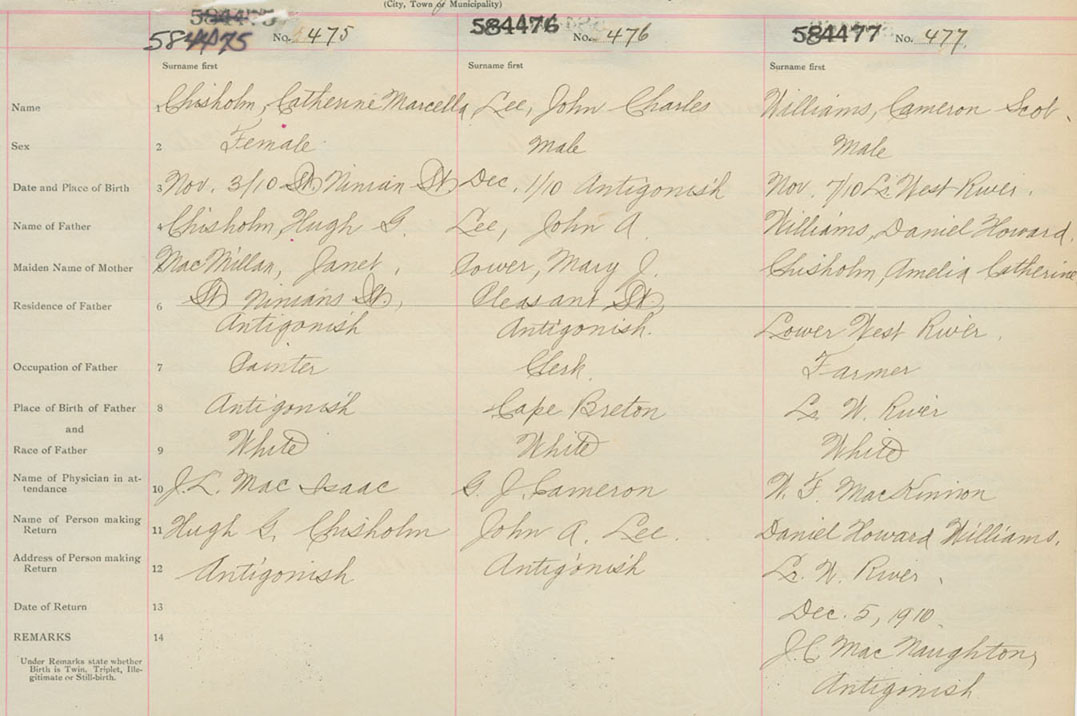 (City, Town or Municipality)
584475
584475 No. 475 584476 No. 476 584477 No. 477
Surname first Surname first Surname first
Name 1 Chisholm, Catherine Marcella Lee, John Charles Williams, Cameron Scot.
Sex 2 Female Male Male
Date and Place of Birth 3 Nov. 3/10 St Ninian St Dec. 1/10 Antigonish Nov. 7/10 Lr West River.
Name of Father 4 Chisholm, Hugh G. Lee, John A. Williams, Daniel Howard.
Maiden Name of Mother 5 MacMillan, Janet. Power, Mary J. Chisholm, Amelia Catherine
Residence of Father 6 St Ninians St., Pleasant St,
Antigonish Antigonish. Lower West River.
Occupation of Father 7 Painter Clerk. Farmer
Place of Birth of Father 8 Antigonish Cape Breton Lr W. River
and
Race of Father 9 White White White
Name of Physician in at-
tendance 10 J. L. MacIsaac G. J. Cameron W. F. MacKinnon
Name of Person making
Return 11 Hugh G. Chisholm John A. Lee. Daniel Howard Williams.
Address of Person making
Return 12 Antigonish Antigonish Lr. W. River.
Date of Return 13 Dec. 5, 1910.
REMARKS 14 MacNaughton,
Under Remarks state whether
Birth is Twin, Triplet, Ille-
gitimate or Still-birth.
Antigonish